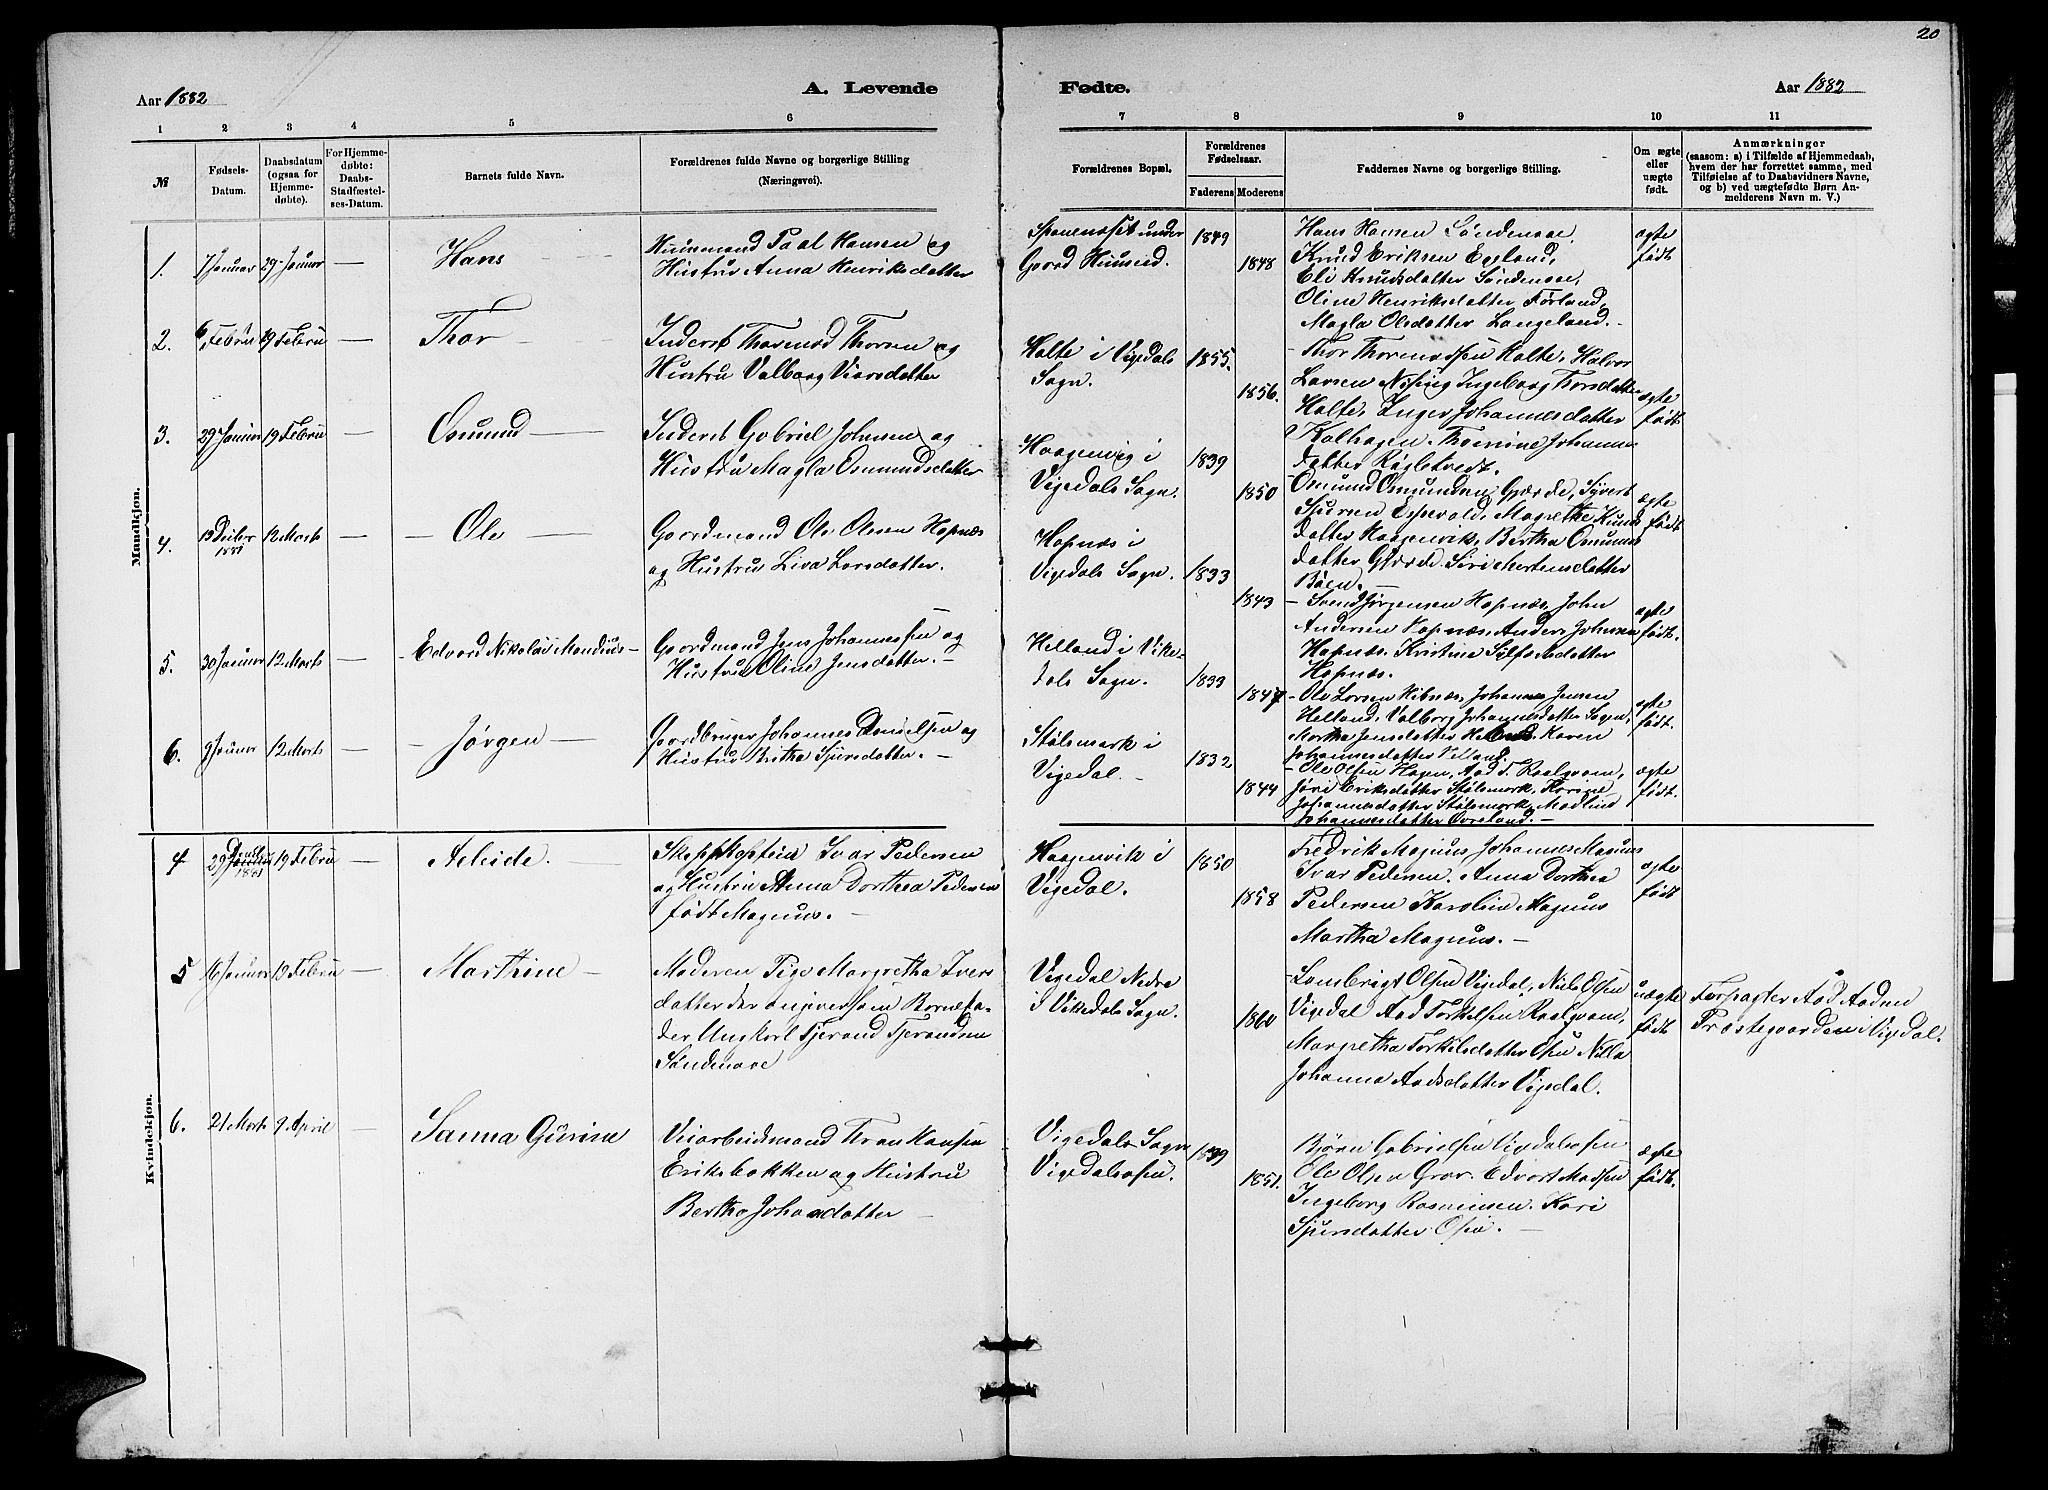 20
Aar 1882
A. Levende
Fødte.
Aar 1882
1 2 3 4 5 6 7 8 9 10 11
№
Fødsels-
Datum.
Daabsdatum
(ogsaa for
Hjemme-
døbte).
For Hjemme-
døbte:
Daabs-
Stadfæstel-
ses-Datum.
Barnets fulde Navn.
Forældrenes fulde Navne og borgerlige Stilling
(Næringsvei).
Forældrenes Bopæl.
Forældrenes
Fødselsaar.
Faderens Moderens
Faddernes Navne og borgerlige Stilling.
Om ægte
eller
uægte
født.
Anmærkninger
(saasom: a) i Tilfælde af Hjemmedaab,
hvem der har forrettet samme, med
Tilføielse af to Daabsvidners Navne,
og b) ved uægtefødte Børn An-
melderens Navn m. V.)
Mandkjøn.
1. 7 Januar 29 Januar — Hans
Huusmand Paal Hansen og
Hustru Anna Henriksdatter
Gaard
1849
1848
Hans Hansen Søndenaae,
Knud Eriksen Egeland,
Eli Knudsdatter Søndenaae,
Oline Henriksdatter Førland,
Magla Olsdatter Langeland. —
ægte
født
2. 6 Febru 19 Febru — Thor
Inderst Thormod Thorsen og
Hustru Valborg Viarsdatter
Halte i Vigedals
Sogn.
1855.
1856.
Thor Thormodsen Halte, Halvor
Larsen Ingeborg Torsdatter
Halte, Inger Johannesdatter
Johannes
datter
ægte
født
3. 29 Januar 19 Febru — Osmund
Inderst Gabriel Johnsen og
Hustru Magla Osmundsdatter
Haagenvig i
Vigedals Sogn.
1839
1850
Osmund Osmundsen Gjærde, Syvert
Sjursen Espevold, Magrethe Knuds
datter Haagenvik, Bertha Osmunds
datter Gjærde, Siri Mortensdatter
Bøen. —
ægte
født
4. 13 Decbr 1881 12 Marts — Ole
Gaardmand Ole Olsen Hapnæs
og Hustru Liva Larsdatter.
Hapnæs i
Vigedals Sogn.
1833
1843
— Svend Jørgensen Hapnæs, John
Andersen Hapnæs, Anders Johnsen
Hapnæs. Kristine datter
Hapnæs.
ægte
født.
5. 30 Januar 12 Marts — Edvard Nikolai Mandius
Gaardmand Jens Johannessen og
Hustru Oline Jensdatter. —
Helland i Vike-
dals Sogn.
1833
1847
— Ole Larsen Johannes Jensen
Helland, Valborg Johannesdatter Sogn,
Martha Jensdatter Karen
Johannesdatter Helland.
ægte
født.
6. 9 Januar 12 Marts — Jørgen
Gaardbruger Johannes Danielsen og
Hustru Britha Sjursdatter. —
Stølsmark i
Vigedal. —
1832
1844
— Ole Olsen Hagen,
Jøri Eriksdatter Stølsmark,
Johannesdatter Stølsmark, Madline
Johannesdatter Øvreland. —
ægte
født.
Kvindekjøn.
4 29 1881 19 Febru — Aleide.
Skipskaptein Ivar Pedersen
og Hustru Anna Dorthea Pedersen
født Magnus. —
Haagenvik i
Vigedal.
1850
1858
Fredrik Magnus Johannes Magnus
Ivar Pedersen. Anna Dorthea
Pedersen Karoline Magnus
Martha Magnus. —
ægte
født
5 16 Januar 19 Febru — Marthine
Moderen Pige Margretha Ivers
datter der angiver som Barnefa-
der Ungkarl Tjerand Tjerandsen
Søndenaae
Vigedal Nedre
i Vikedals Sogn.
1860
Lars Brigt Olsen Vigedal, Nils Olsen
Vigedal Aad Torkelsen Raalqvam,
Margretha Torkilsdatter Osen Nilla
Johanna Aadsdatter Vigedal.
uægte
født
Forpagter Aad Aadnen
Præstegaarden i Vigedal.
6. 21 Marts 9 April Sanna Gurine
Veiarbeidsmand Hansen
Eriksbakken og Hustru
Bertha Johansdatter —
Vigedals Sogn
Vigedalsosen.
1839
1851.
Bjørn Gabrielsen Vigdalsosen
Ole Olsen Grov. Edvart Madsen
Ingeborg Rasmussen. Kari
Sjursdatter Osen. —
ægte
født.